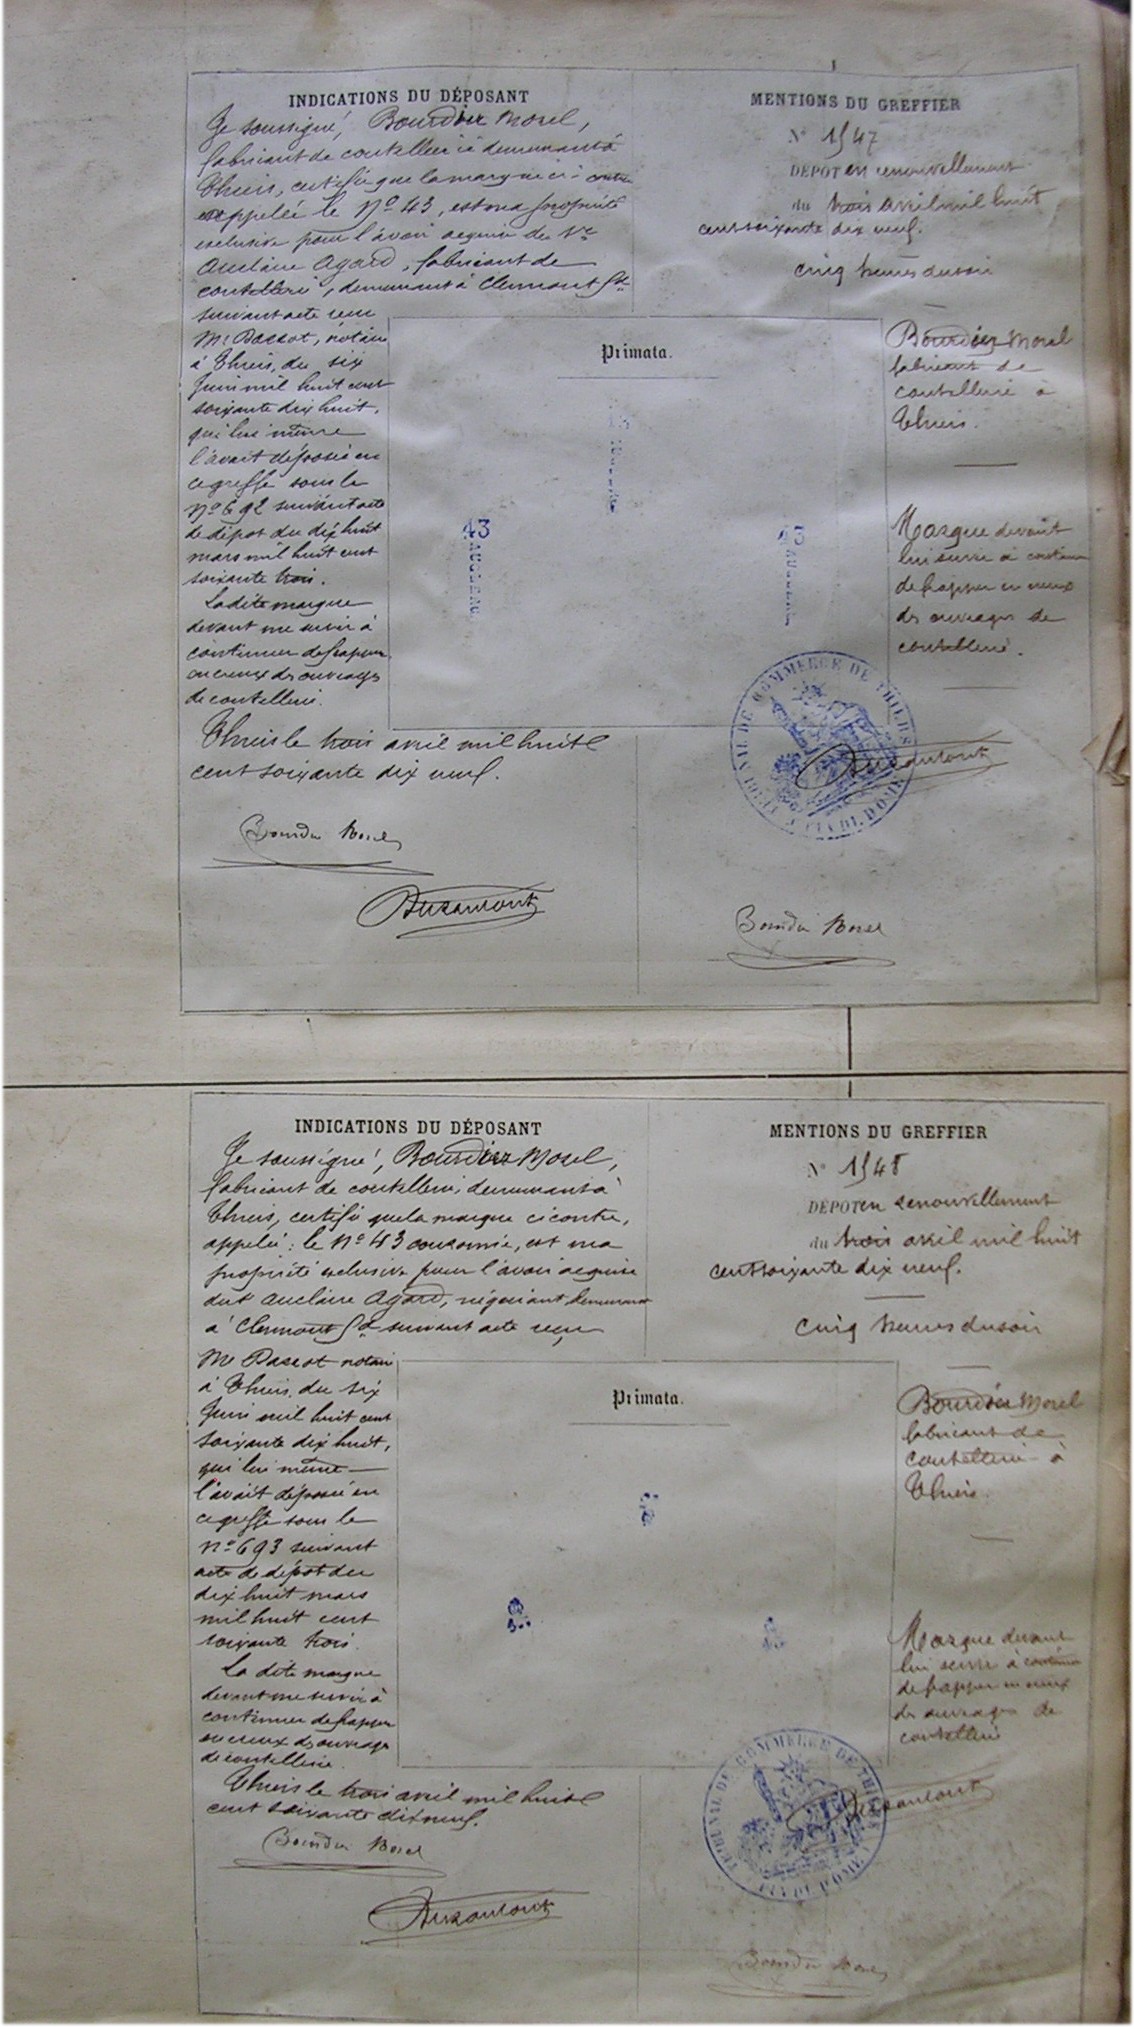 INDICATIONS DU DÉPOSANT
Je soussigné, Bourdier Morel,
fabricant de coutellerie demeurant à
Thiers, certifie que la marque ci-contre
appelée le No 43, est ma propriété
exclusive pour l'avoir acquise de Sr
Auclaire Agard, fabricant de
coutellerie, demeurant à Clermont Fd
suivant acte reçu
Me Passot, notaire
à Thiers, du six
Juin mil huit cent
soixante dix huit,
qui lui même
l'avait déposée en
ce greffe sous le
No 692 suivant acte
de dépôt du dix huit
mars mil huit cent
soixante trois.
La dite marque
devant me servir à
continuer de frapper
en creux des ouvrages
de coutellerie.
Thiers le trois avril mil huit
cent soixante dix neuf.
Bourdier Morel
MENTIONS DU GREFFIER
No 1547
DÉPOT en renouvellement
du trois avril mil huit
cent soixante dix neuf.
cinq heures du soir
Primata.
43
43
Bourdier Morel
fabricant de
coutellerie à
Thiers.
Marque devant
lui servir à continuer
de frapper en creux
des ouvrages de
coutellerie.
TRIBUNAL DE COMMERCE DE THIERS
PUY DE DOME
Bourdier Morel
INDICATIONS DU DÉPOSANT
Je soussigné, Bourdier Morel,
fabricant de coutellerie, demeurant à
Thiers, certifie que la marque ci contre,
appelée: le No 43 couronné, est ma
propriété exclusive pour l'avoir acquise
du Sr Auclaire Agard, négociant, demeurant
à Clermont Fd suivant acte reçu
Me Passot notaire
à Thiers, du six
Juin mil huit cent
soixante dix huit,
qui lui même
l'avait déposée en
ce greffe sous le
No 693 suivant
acte de dépôt du
dix huit mars
mil huit cent
soixante trois.
La dite marque
devant me servir à
continuer de frapper
en creux des ouvrages
de coutellerie.
Thiers le trois avril mil huit
cent soixante dix neuf.
Bourdier Morel
MENTIONS DU GREFFIER
No 1548
DÉPOT en renouvellement
du trois avril mil huit
cent soixante dix neuf.
Cinq heures du soir
Primata.
Bourdier Morel
fabricant de
coutellerie à
Thiers.
Marque devant
lui servir à continuer
de frapper en creux
des ouvrages de
coutellerie
TRIBUNAL DE COMMERCE DE THIERS
PUY DE DOME
Bourdier Morel